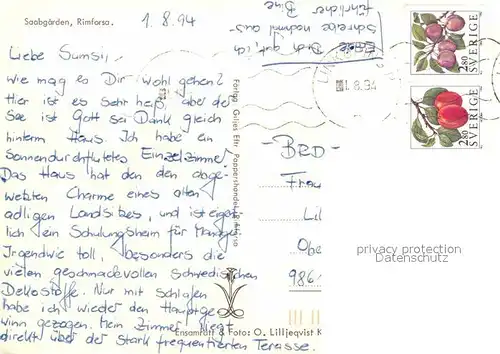 Saabgården, Rimforsa.
1.8.94
Liebe Sumsi,
wie mag es Dir wohl gehen?
Hier ist es sehr heiß, aber der
See ist Gott sei Dank gleich
hinterm Haus. Ich habe ein
sonnendurchflutetes Einzelzimmer.
Das Haus hat den den abge-
wetzten Charme eines alten
adligen Landsitzes, und ist eigent
lich ein Schulungsheim für Manager
Irgendwie toll, besonders die
vielen geschmackvollen schwedischen
Dekostoffe. Nur mit Schlafen
habe ich wieder den Hauptge-
winn gezogen. Mein Zimmer liegt
direkt über der stark frequentierten Terasse.
schreibe nochmal aus-
führlicher Bine
Förlag: Giljes Eftr Pappershandel, Rimforsa
Ensamrätt & Foto: O. Lilljeqvist K
- BRD -
Frau
Lil
Obe
986
1.8.94
2.80 SVERIGE
2.80 SVERIGE
privacy protection
Datenschutz